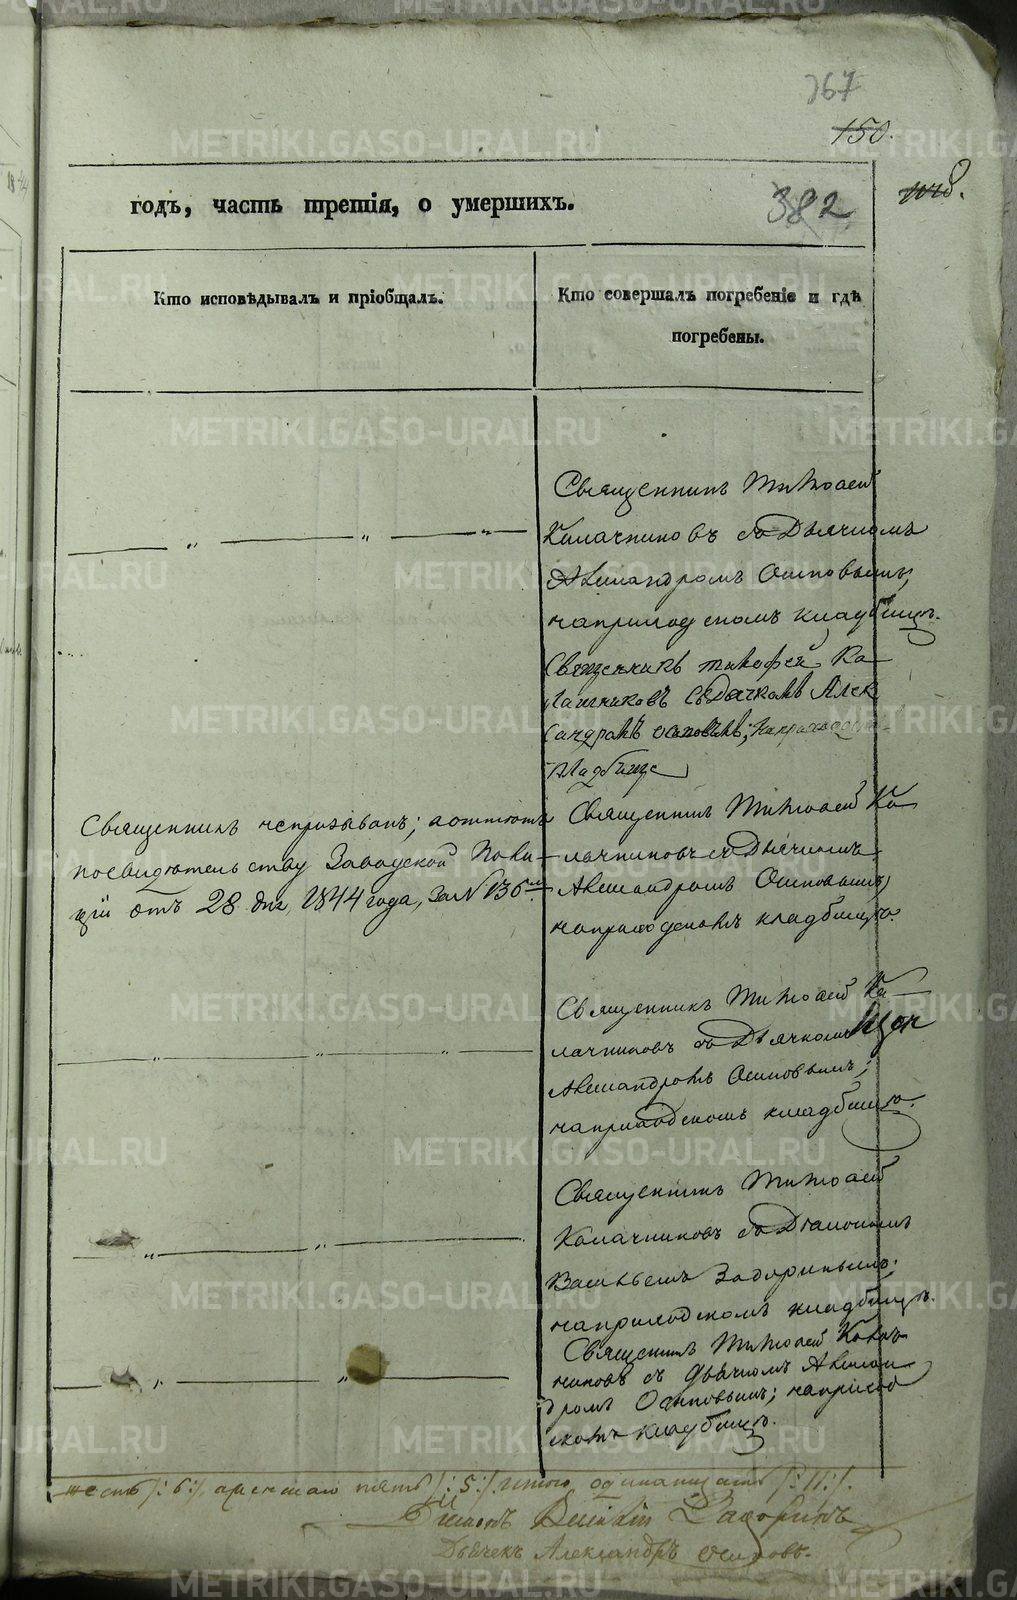 367
150.
годъ, часть третія, о умершихъ.
382
Кто исповѣдывалъ и пріобщалъ.
Кто совершалъ погребеніе и гдѣ
погребены.
Священникъ Тимофей
Калачниковъ съ Дьячкомъ
Александромъ Осиповымъ;
на приходскомъ кладбищѣ.
Священникъ Тимофей Ка-
лачниковъ съ Дьячкомъ Алек
сандромъ Осиповымъ;
кладбище
Священникъ не призыванъ;
по свидѣтельству Заводской Поли-
ціи отъ 28 дня, 1844 года, за № 136
Священникъ Тимофей Ка
лачниковъ съ Дьячкомъ
Александромъ Осиповымъ,
на приходскомъ кладбищѣ.
Священникъ Тимофей Ка-
лачниковъ съ Дьячкомъ
Александромъ Осиповымъ;
на приходскомъ кладбищѣ.
Священникъ Тимофей
Калачниковъ съ Діакономъ
Васильемъ Задоринымъ;
на приходскомъ кладбищѣ.
Священникъ Тимофей Калач-
никовъ съ Дьячкомъ Алексан
дромъ Осиповымъ; на приход
скомъ кладбищѣ.
шесть /:6:/, женскаго пять /:5:/ итого одинатцать /:11:/.
Діаконъ Василій Задоринъ
Дьячекъ Александръ Осиповъ.
METRIKI.GASO-URAL.RU